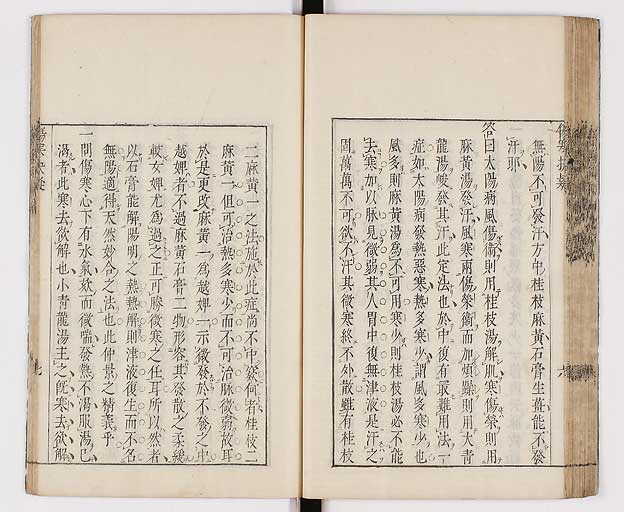 無陽不可發汗方中桂枝麻黃石膏生薑能不發
一汗耶
答曰太陽病風傷衛則用桂枝湯解肌寒傷榮則用
麻黃湯發汗風寒兩傷榮衛而加煩躁則用大青
龍湯峻發其汗此定法也於中復有最難用法一
症如太陽病發熱惡寒熱多寒少謂風多寒少也
風多則麻黃湯爲不可用寒少則桂枝湯必不能
去寒加以脉見微弱其人胃中復無津液是汗之
固萬萬不可欲不汗其微寒終不外散雖有桂枝
二麻黃一之法施於此症尚不中發何者桂枝二
麻黃一但可治熱多寒少而不可治脉微弱故耳
於是更改麻黃一爲越婢一示微發於不發之中
越婢者不過麻黃石膏二物形容其發散之柔緩
較女婢尤爲過之正可勝微寒之任耳所以然者
以石膏能解陽明之熱熱解則津液復生而不名
無陽適得天然妙合之法也此仲景之精義乎
一問傷寒心下有水氣欬而微喘發熱不渴服湯已
渴者此寒去欲解也小青龍湯主之既寒去欲解